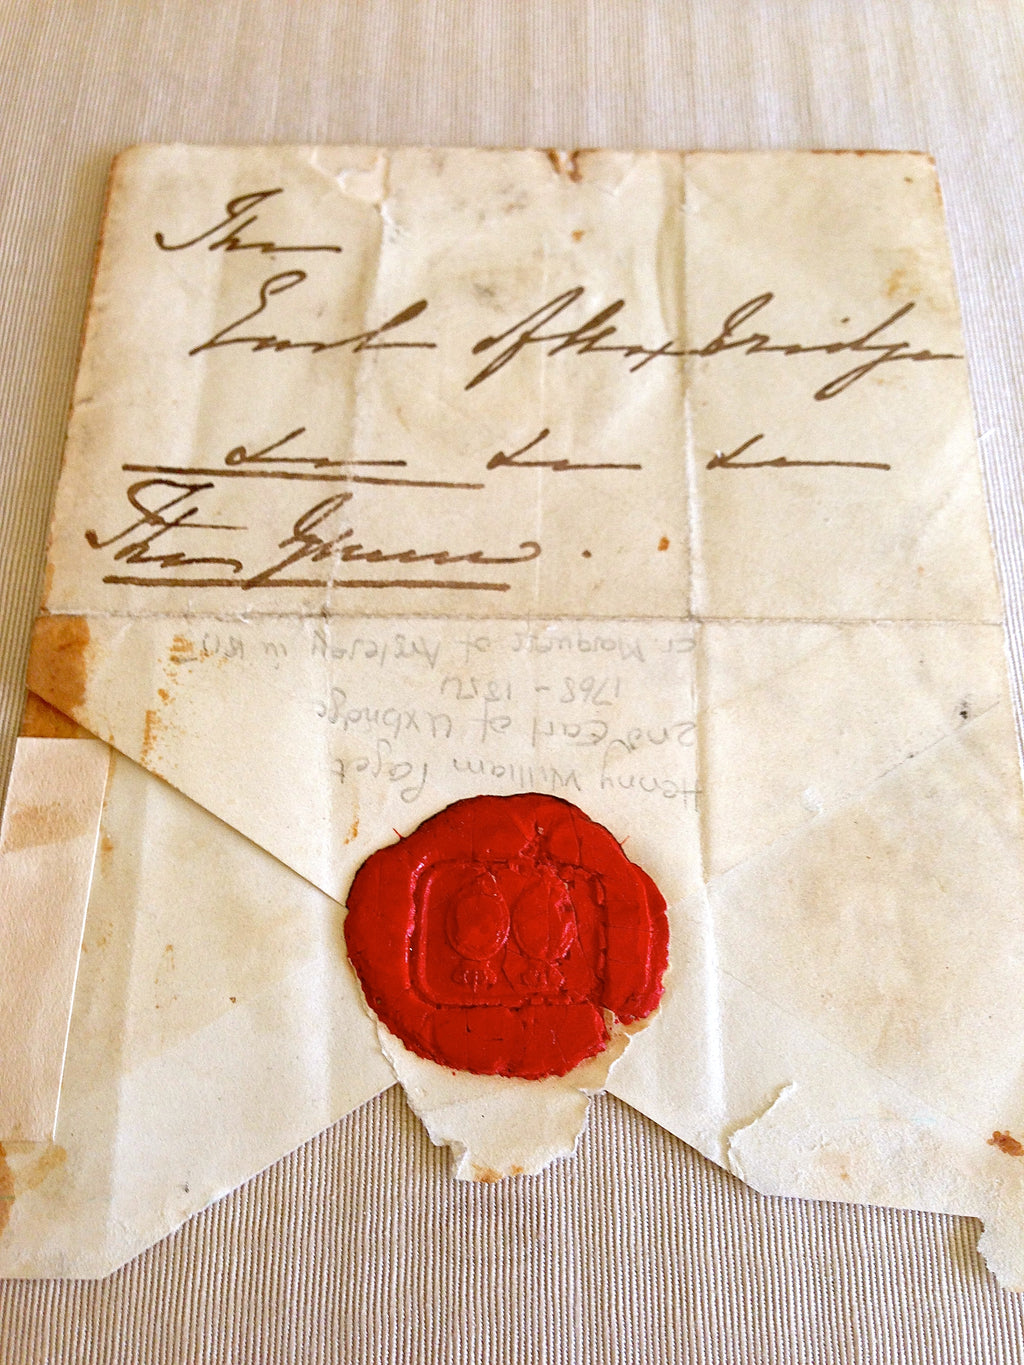 The
Earl of Uxbridge
&c &c &c
The Queen.
Henry William Paget
2nd Earl of Uxbridge
1768 - 1854
cr. Marquess of Anglesey in